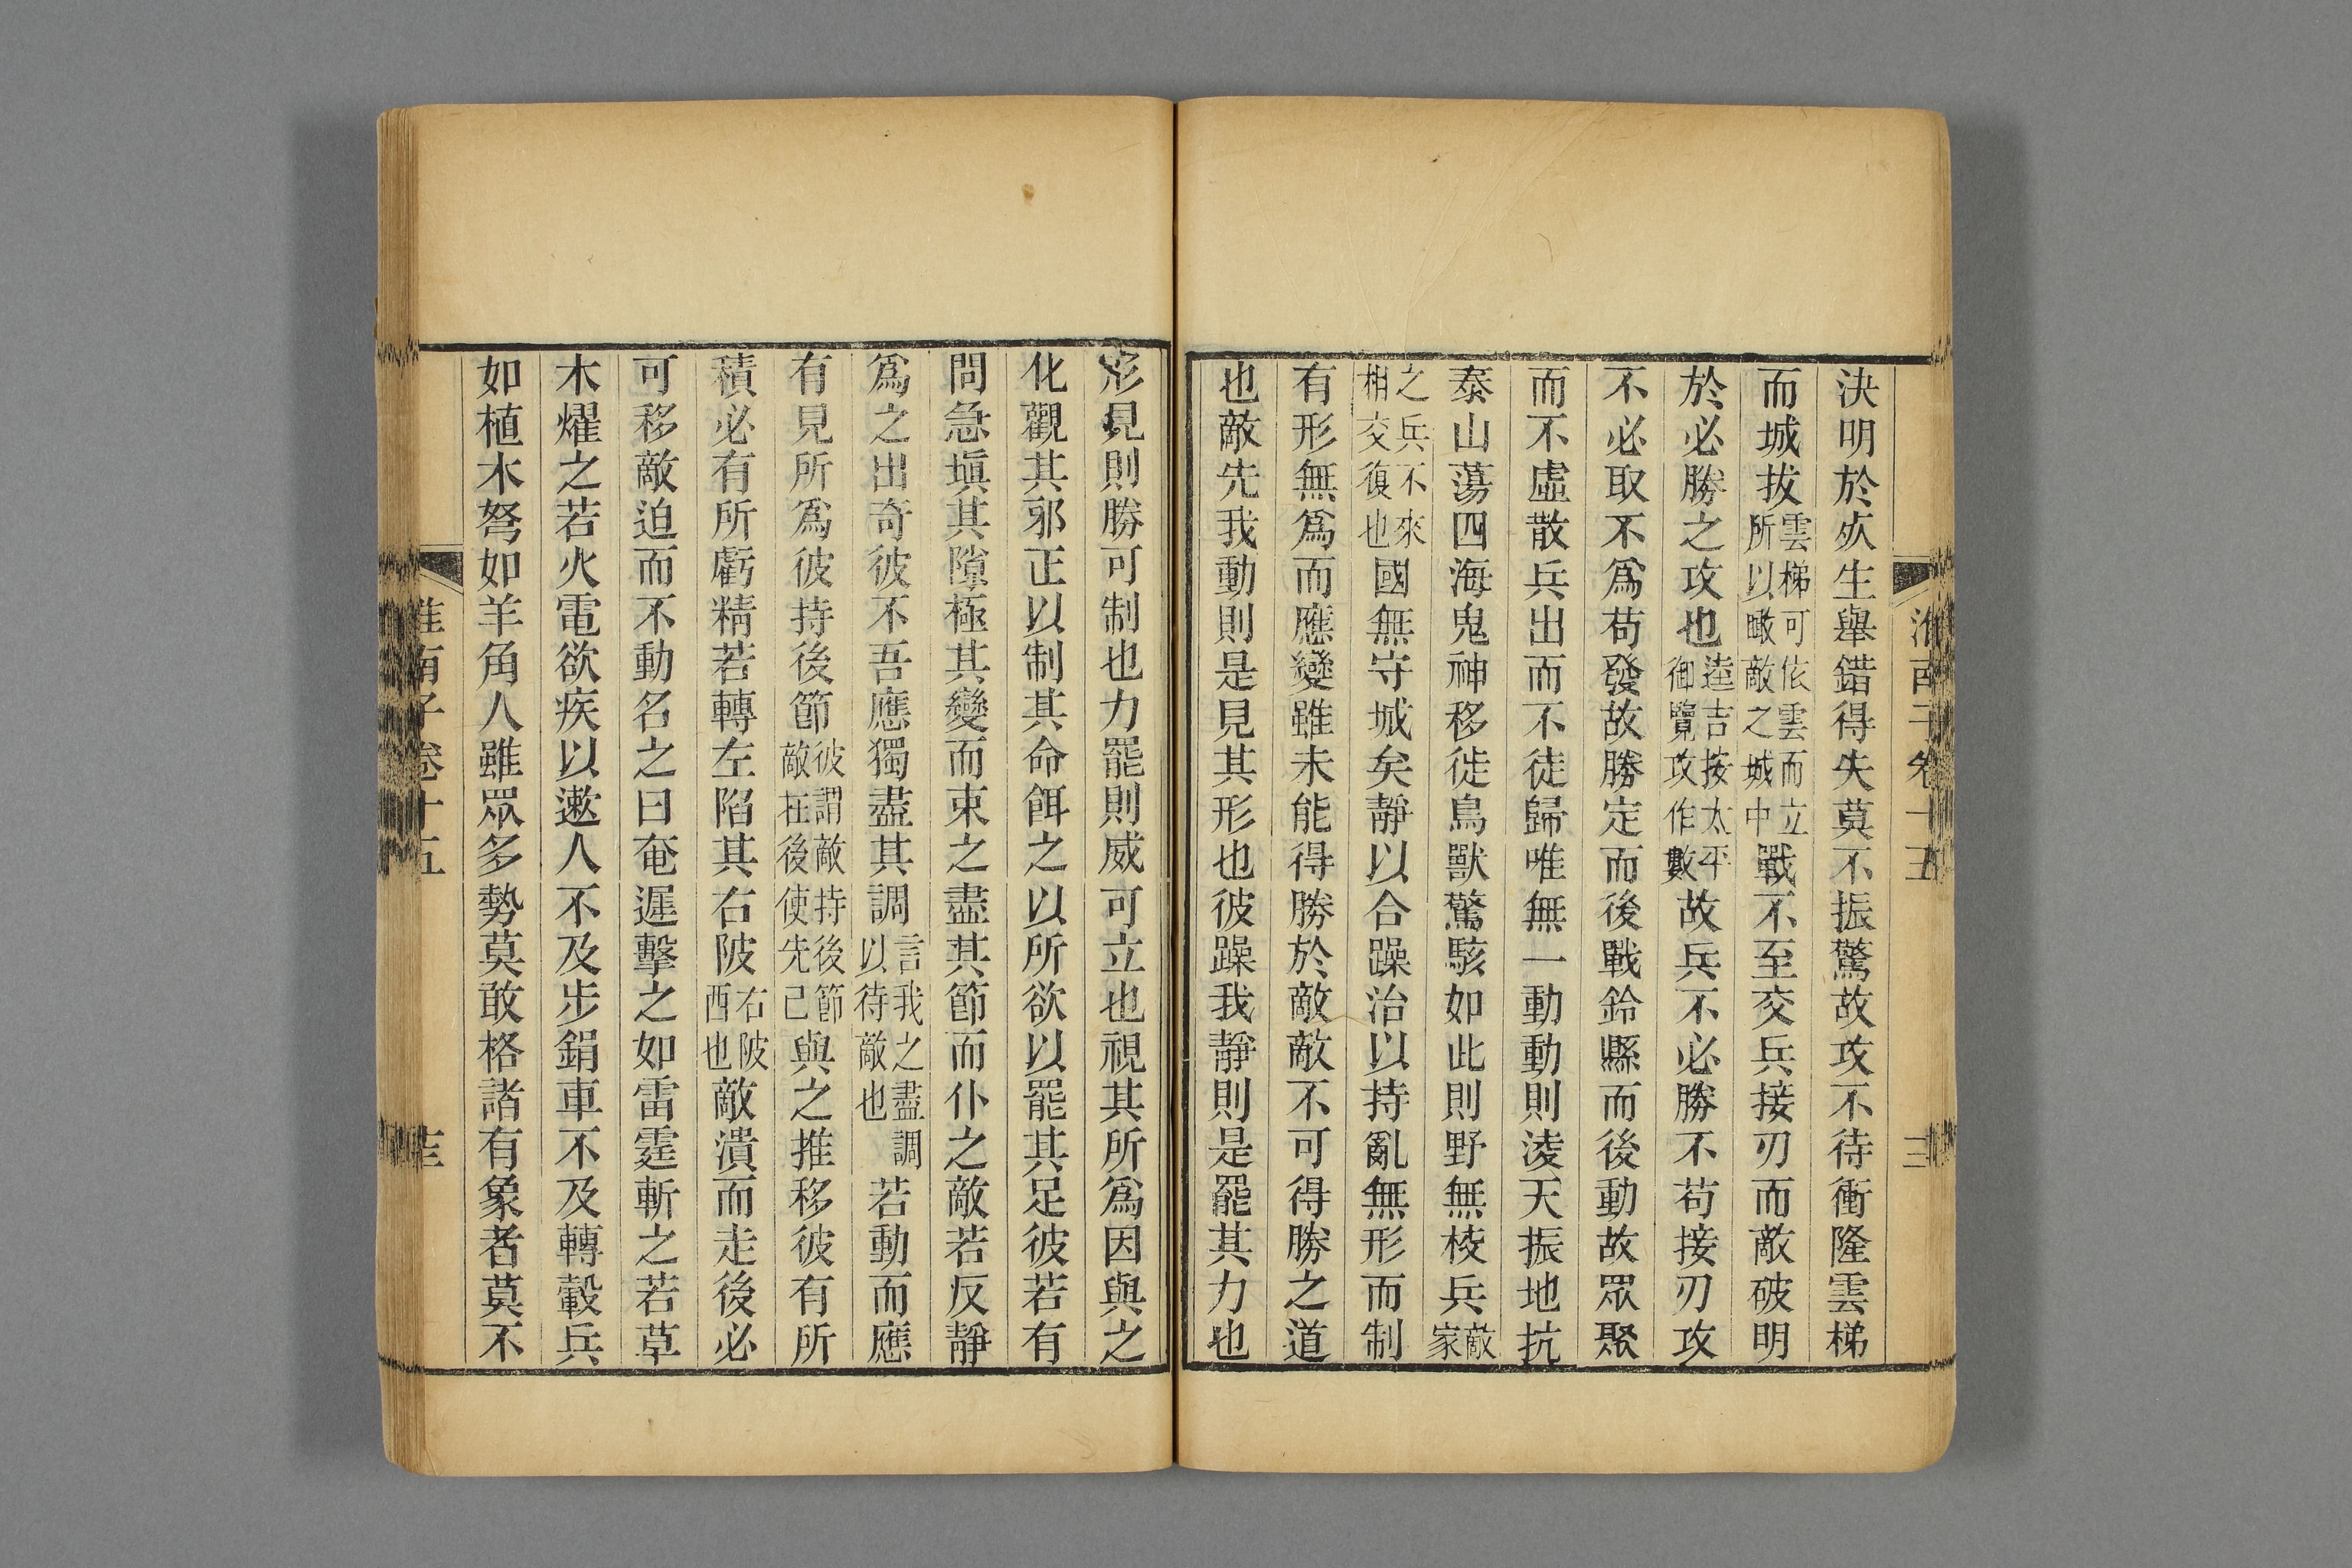 淮南子卷十五
決明於必生舉錯得失莫不振驚故攻不待衝隆雲梯
而城拔雲梯可依雲而立所以瞰敵之城中戰不至交兵接刃而敵破明
於必勝之攻也逵吉按太平御覽攻作數故兵不必勝不苟接刃攻
不必取不爲苟發故勝定而後戰鈴縣而後動故眾聚
而不虛散兵出而不徒歸唯無一動動則淩天振地抗
泰山蕩四海鬼神移徙鳥獸驚駭如此則野無棱兵敵家
之兵不來相交復也國無守城矣靜以合躁治以持亂無形而制
有形無爲而應變雖未能得勝於敵敵不可得勝之道
也敵先我動則是見其形也彼躁我靜則是罷其力也
形見則勝可制也力罷則威可立也視其所爲因與之
化觀其邪正以制其命餌之以所欲以罷其足彼若有
間急塡其隙極其變而束之盡其節而仆之敵若反靜
爲之出奇彼不吾應獨盡其調言我之盡調以待敵也若動而應
有見所爲彼持後節彼謂敵持後節敵在後使先己與之推移彼有所
積必有所虧精若轉左陷其右陂右陂西也敵潰而走後必
可移敵迫而不動名之曰奄遲擊之如雷霆斬之若草
木燿之若火電欲疾以遬人不及步鋗車不及轉轂兵
如植木弩如羊角人雖眾多勢莫敢格諸有象者莫不
淮南子卷十五